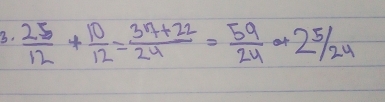 3. 25/12 + 10/12 = 37+22/24 = 59/24 → 2 5/24